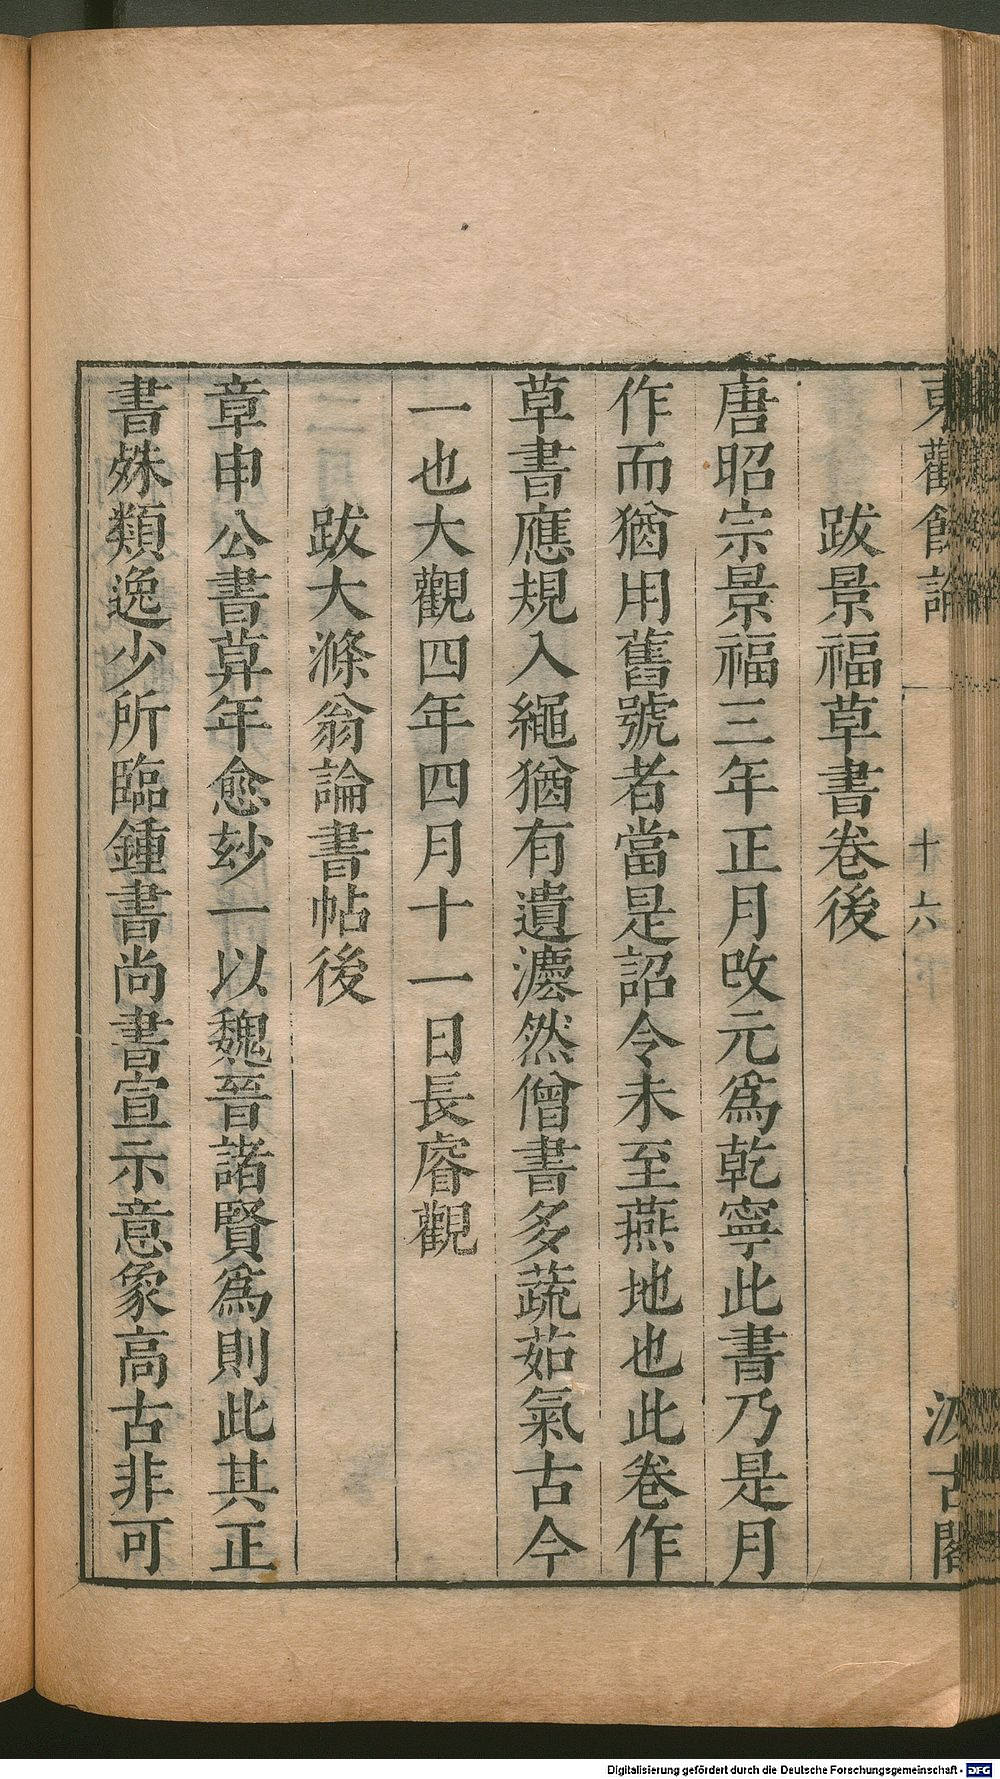 東觀餘論
十六
汲古閣
跋景福草書卷後
唐昭宗景福三年正月改元爲乾寧此書乃是月
作而猶用舊號者當是詔令未至燕地也此卷作
草書應規入繩猶有遺灋然僧書多蔬茹氣古今
一也大觀四年四月十一日長睿觀
跋大滌翁論書帖後
章申公書莫年愈玅一以魏晉諸賢爲則此其正
書姝類逸少所臨鍾書尚書宣示意象高古非可
Digitalisierung gefördert durch die Deutsche Forschungsgemeinschaft - DFG